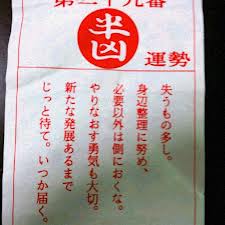 半凶
運勢
失うもの多し。
身辺整理に努め、
必要以外は側におくな。
やりなおす勇気も大切。
新たな発展あるまで
じっと待て。いつか届く。